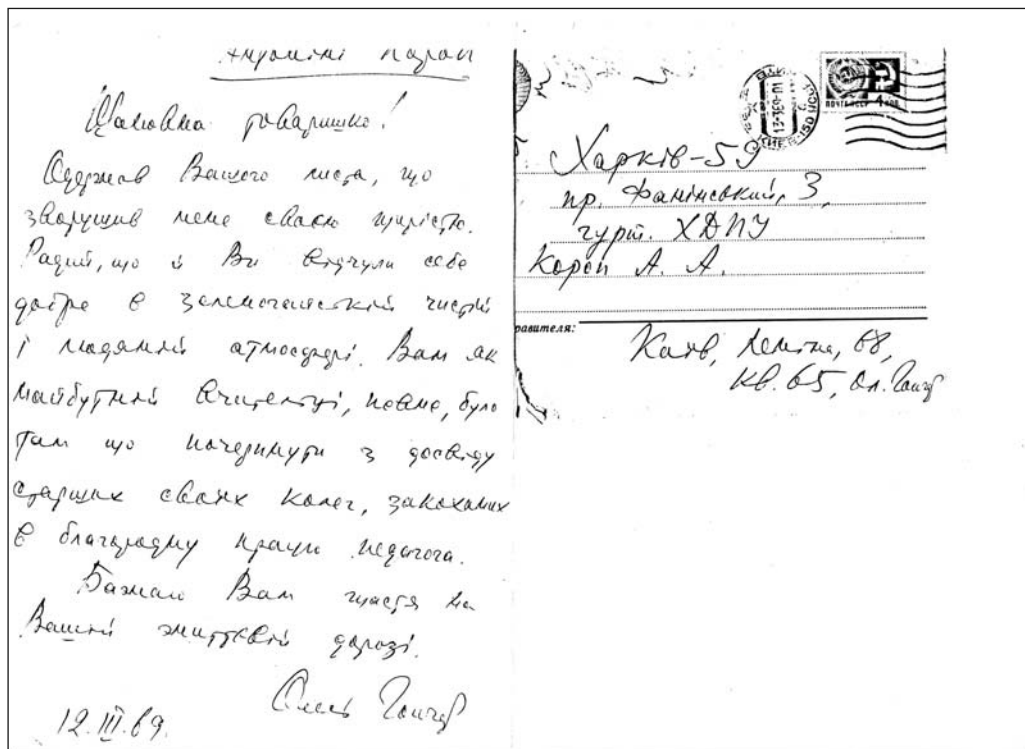 Антоніні Короп
Шановна товаришко!
Одержав Вашого листа, що
зворушив мене своєю щирістю.
Радий, що й Ви відчули себе
добре в зеленогайській чистій
і людяній атмосфері. Вам як
майбутній вчительці, певне, було
там що почерпнути з досвіду
старших своїх колег, закоханих
в благородну працю педагога.
Бажаю Вам щастя на
Вашій життєвій дорозі.
Олесь Гончар
12.III.69.
ПОЧТА СССР 4 коп
13-369-01
КИЕВ-150
Харків-59
пр. Фанінський, 3,
гурт. ХДПУ
Короп А. А.
равителя:
Київ, Леніна, 68,
кв. 65, Ол. Гончар